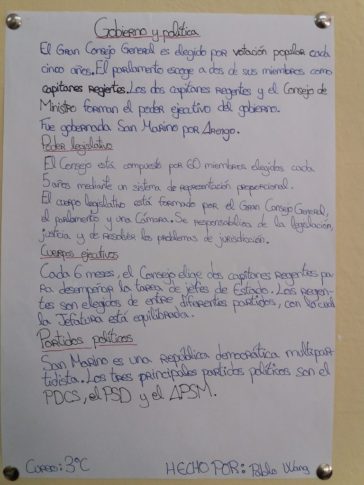 Gobierno y política
El Gran Consejo General es elegido por votación popular cada
cinco años. El parlamento escoge a dos de sus miembros como
capitanes regentes. Los dos capitanes regentes y el Consejo de
Ministro forman el poder ejecutivo del gobierno.
Fue gobernada San Marino por Arengo.
Poder legislativo
El Consejo está compuesto por 60 miembros elegidos cada
5 años mediante un sistema de representación proporcional.
El cuerpo legislativo está formado por el Gran Consejo General,
el parlamento y una Cámara. Se responsabiliza de la legislación,
justicia y de resolver los problemas de jurisdicción.
Cuerpo ejecutivo
Cada 6 meses, el Consejo elige dos capitanes regentes pa
ra desempeñar la tarea de jefes de Estado. Los regen-
tes son elegidos de entre diferentes partidos, con lo cual
la Jefatura está equilibrada.
Partidos políticos
San Marino es una República democrática multipar-
tidista. Los tres principales partidos políticos son el
PDCS, el PSD y el APSM.
Curso: 3ºC HECHO POR: Pablo Wang